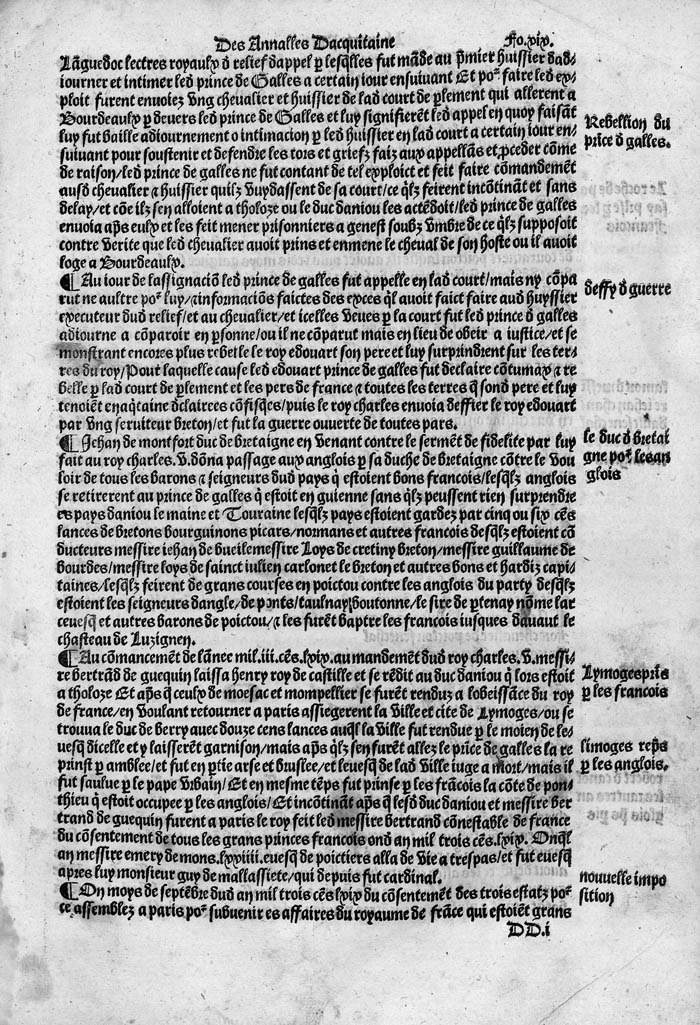 Des Annalles Dacquitaine Fo.xix.
Lãguedoc lectres royaulx d relief dappel p lesqlles fut mãde au pmier huissier dad-
iourner et intimer led prince de Galles a certain iour ensuivant Et po⁹ faire led ex-
ploit furent envoiez Ung chevalier et huissier de lad court de plement qui allerent a
Bourdeaulx p devers led prince de Galles et luy signifierẽt led appel en quoy faisãt
luy fut baille adiournement o intimacion p led huissier en lad court a certain iour en-
suivant pour soustenir et defendre les tors et griefz faiz aux appellãs et pceder cõme
de raison/led prince de galles ne fut contant de tel exploict et feit faire cõmandemẽt
ausd chevalier ⁊ huissier quilz vuydassent de sa court/ce qlz feirent incõtinãt et sans
delay/et cõe ilz sen alloient a tholoze ou le duc daniou les actẽdoit/led prince de galles
envoia aps eulx et les feit mener prisonniers a genest soubz vmbre de ce qlz supposoit
contre verite que led chevalier avoit prins et enmene le cheval de son hoste ou il avoit
loge a Bourdeaulx.
Rebellion du
prĩce d galles.
¶ Au iour de lassignaciõ led prince de galles fut appelle en lad court/mais ny cõpa
rut ne aultre po⁹ luy/⁊informaciõs faictes des exces ql avoit faict faire aud huyssier
executeur dud relief/et au chevalier/et icelles veues p la court fut led prince d galles
adiourne a cõparoir en psonne/ou il ne cõparut mais en lieu de obeir a iustice/et se
monstrant encores plus rebelle le roy edouart son pere et luy surprindrent sur les ter-
res du roy/Pour laquelle cause led edouart prince de galles fut declaire cõtumax ⁊ re
belle p lad court de plement et les pers de france ⁊ toutes les terres q sond pere et luy
tenoiẽt en aqtaine dclairees cõfisqes/puis le roy charles envoia deffier le roy edouart
par Ung serviteur breton/et fut la guerre ouverte de toutes pars.
deffy d guerre
¶ Jehan de montfort duc de bretaigne en venant contre le sermẽt de fidelite par luy
fait au roy charles. v. dõna passage aux anglois p sa duche de bretaigne cõtre le vou
loir de tous les barons ⁊ seigneurs dud pays q estoient bons francois/lesqlz anglois
se retirerent au prince de galles q estoit en guienne sans qlz peussent rien surprendre
es pays daniou le maine et Touraine lesqlz pays estoient gardez par cinq ou six cẽs
lances de bretons bourguinons picars/normans et autres francois desqlz estoient cõ
ducteurs messire iehan de bueil messire Loys de cretiny breton/messire guillaume de
bourdes/messire loys de sainct iulien carlonet le breton et autres bons et hardiz capi-
taines/lesqlz feirent de grans courses en poictou contre les anglois du party desqlz
estoient les seigneurs dangle/de ponts/taulnay boutonne/le sire de ptenay nõme lar
cevesq et autres barons de poictou/⁊ les furẽt baptre les francois iusques davant le
chasteau de Luzignen.
le duc d bretai
gne po⁹ les an
glois
¶ Au cõmancemẽt de lannee mil.iii.cẽs.lxix.au mandemẽt dud roy charles. v. messi-
re bertrãd de guequin laissa henry roy de castille et se rẽdit au duc daniou q lors estoit
a tholoze Et aps q ceulx de moesac et mompellier se furẽt renduz a lobeissãce du roy
de france/en voulant retourner a paris assiegerent la ville et cite de Lymoges/ou se
trouva le duc de berry avec douze cens lances auql la ville fut rendue p le moien de le-
vesq dicelle et y laisserẽt garnison/mais aps qlz sen furẽt allez le prĩce de galles la re
prinst p amblee/et fut en ptie arse et bruslee/et levesq de lad ville iuge a mort/mais il
fut saulue p le pape vrbain/Et en mesme tẽps fut prinse p les frãcois la cõte de pon-
thieu q estoit occupee p les anglois/Et incõtinãt aps q lesd duc daniou et messire ber
trand de guequin furent a paris le roy feit led messire bertrand cõnestable de france
du cõsentement de tous les grans princes francois ond an mil trois cẽs.lxix. Onql
an messire emery de mons.lxxiiii.evesq de poictiers alla de vie a trespas/et fut evesq
apres luy monsieur guy de mallassiete/qui depuis fut cardinal.
Lymoges prĩs
p les francois
limoges reps
p les anglois.
¶ On moys de septẽbre dud an mil trois cẽs lxix du cõsentemẽt des trois estatz po⁹
ce assemblez a paris po⁹ subvenir es affaires du royaume de frãce qui estoiẽt grans
nouvelle impo
sition
DD.i